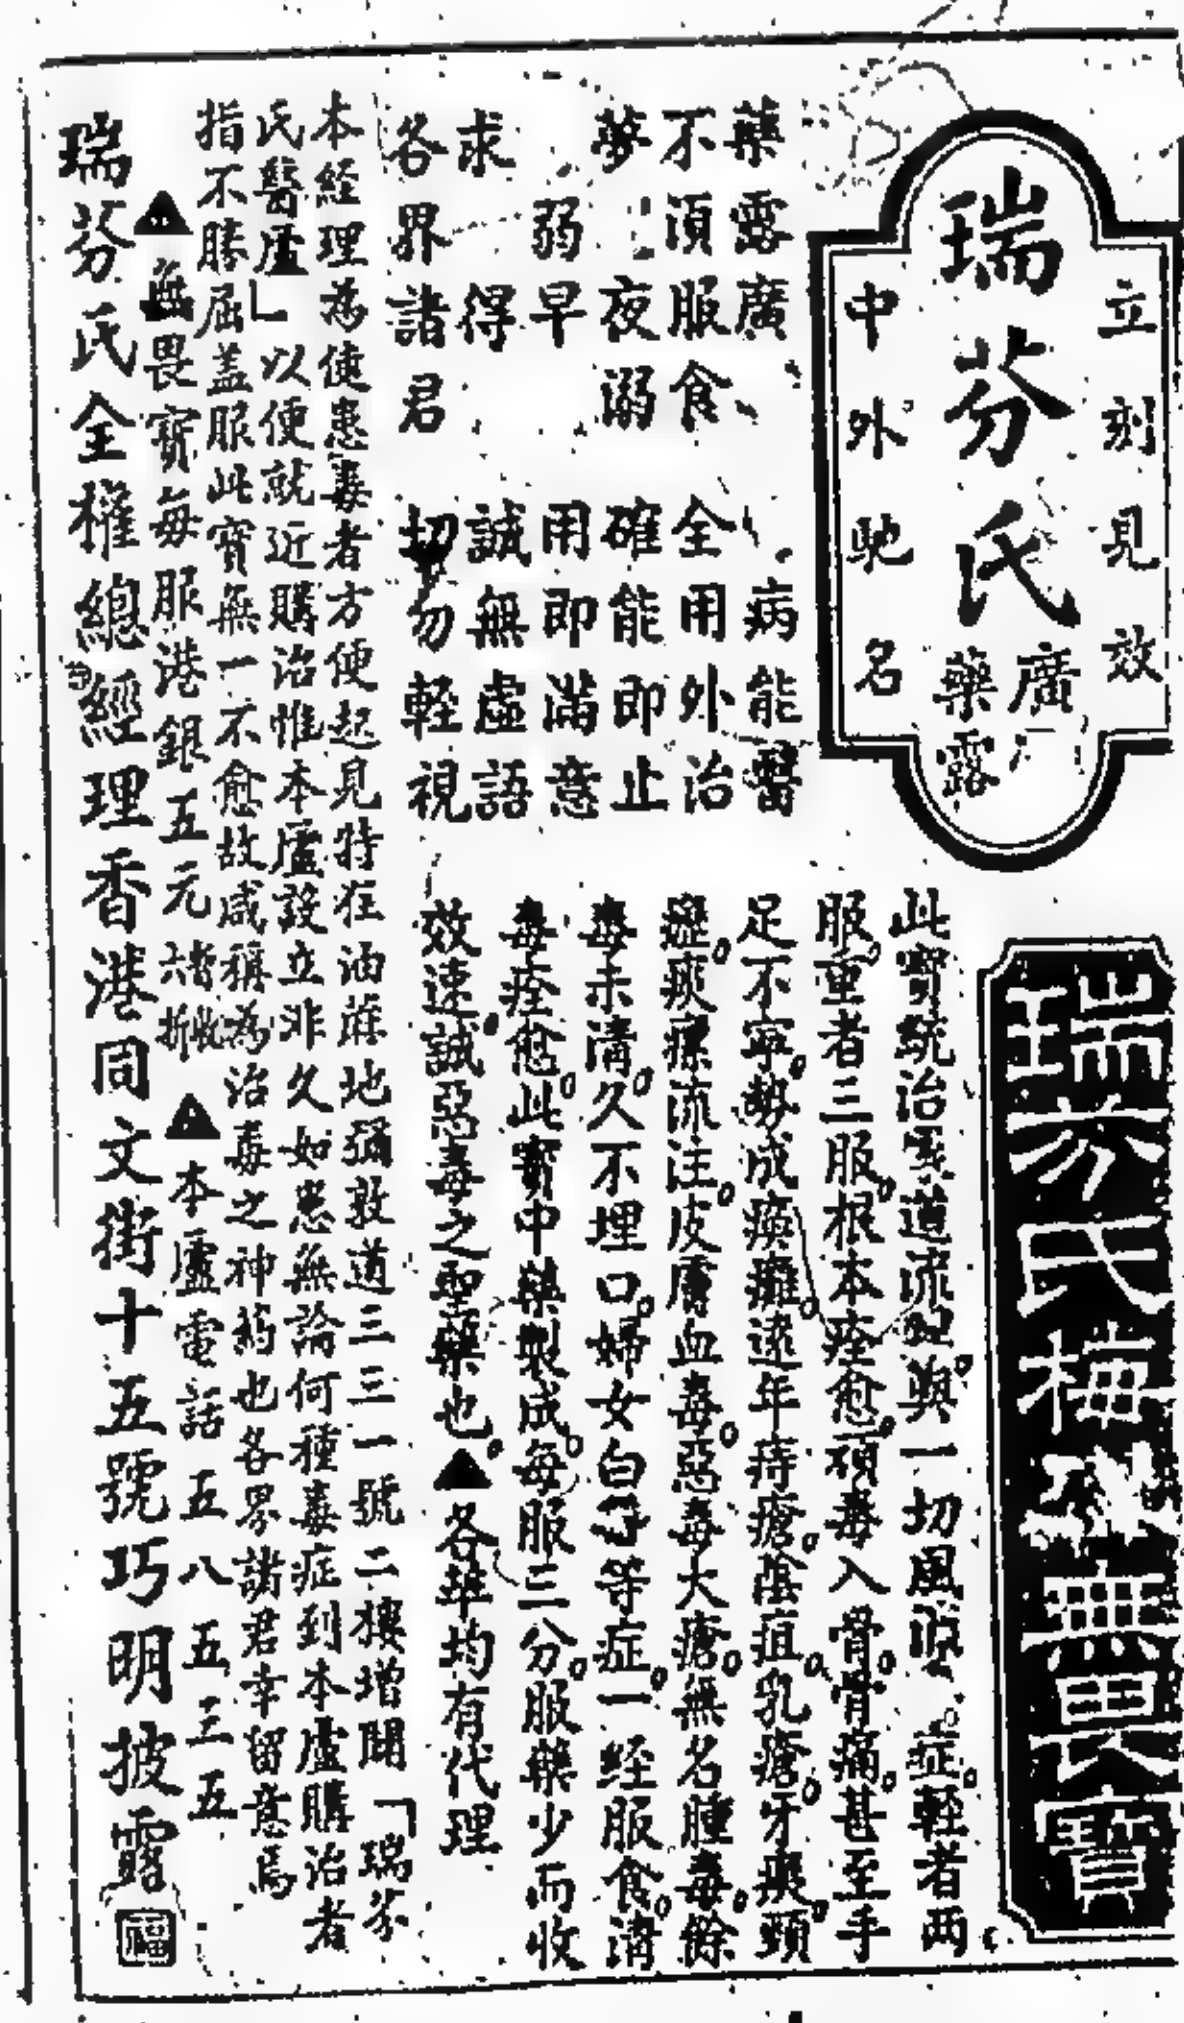 立刻見效
瑞芬氏
廣
藥露
中外馳名
藥露廣 病能醫
不須服食 全用外治
夢 夜溺 確能即止
弱早 用即滿意
求 得 誠無虛語
各界諸君 切勿輕視
瑞芬氏梅 無畏寶
此寶統治 一切風 症輕者两
服。重者三服。根本痊愈。項毒入骨。骨痛。甚至手
足不寧。勢成瘓癱。遠年痔瘡。陰疽。乳瘡。牙痰。頸
癧。痰瘰流注。皮膚血毒。惡毒大瘡。無名腫毒。餘
毒未清。久不埋口。婦女白 等症。一経服食。清
毒痊愈。此寶中藥製成。每服三分。服藥少而收
效速。誠惡毒之聖藥也。▲各 均有代理
本経理為使患毒者方便起見特在油蔴地彌敦道三三一號二樓增闢「瑞芬
氏醫廬」以便就近購治惟本廬設立非久如患無論何種毒症到本廬購治者
指不勝屈盖服此寶無一不愈故咸稱為治毒之神葯也各界諸君幸留意焉
▲無畏寶每服港銀五元 暫收六折 ▲本廬電話五八五三五
瑞芬氏全權總經理香港同文街十五號巧明披露